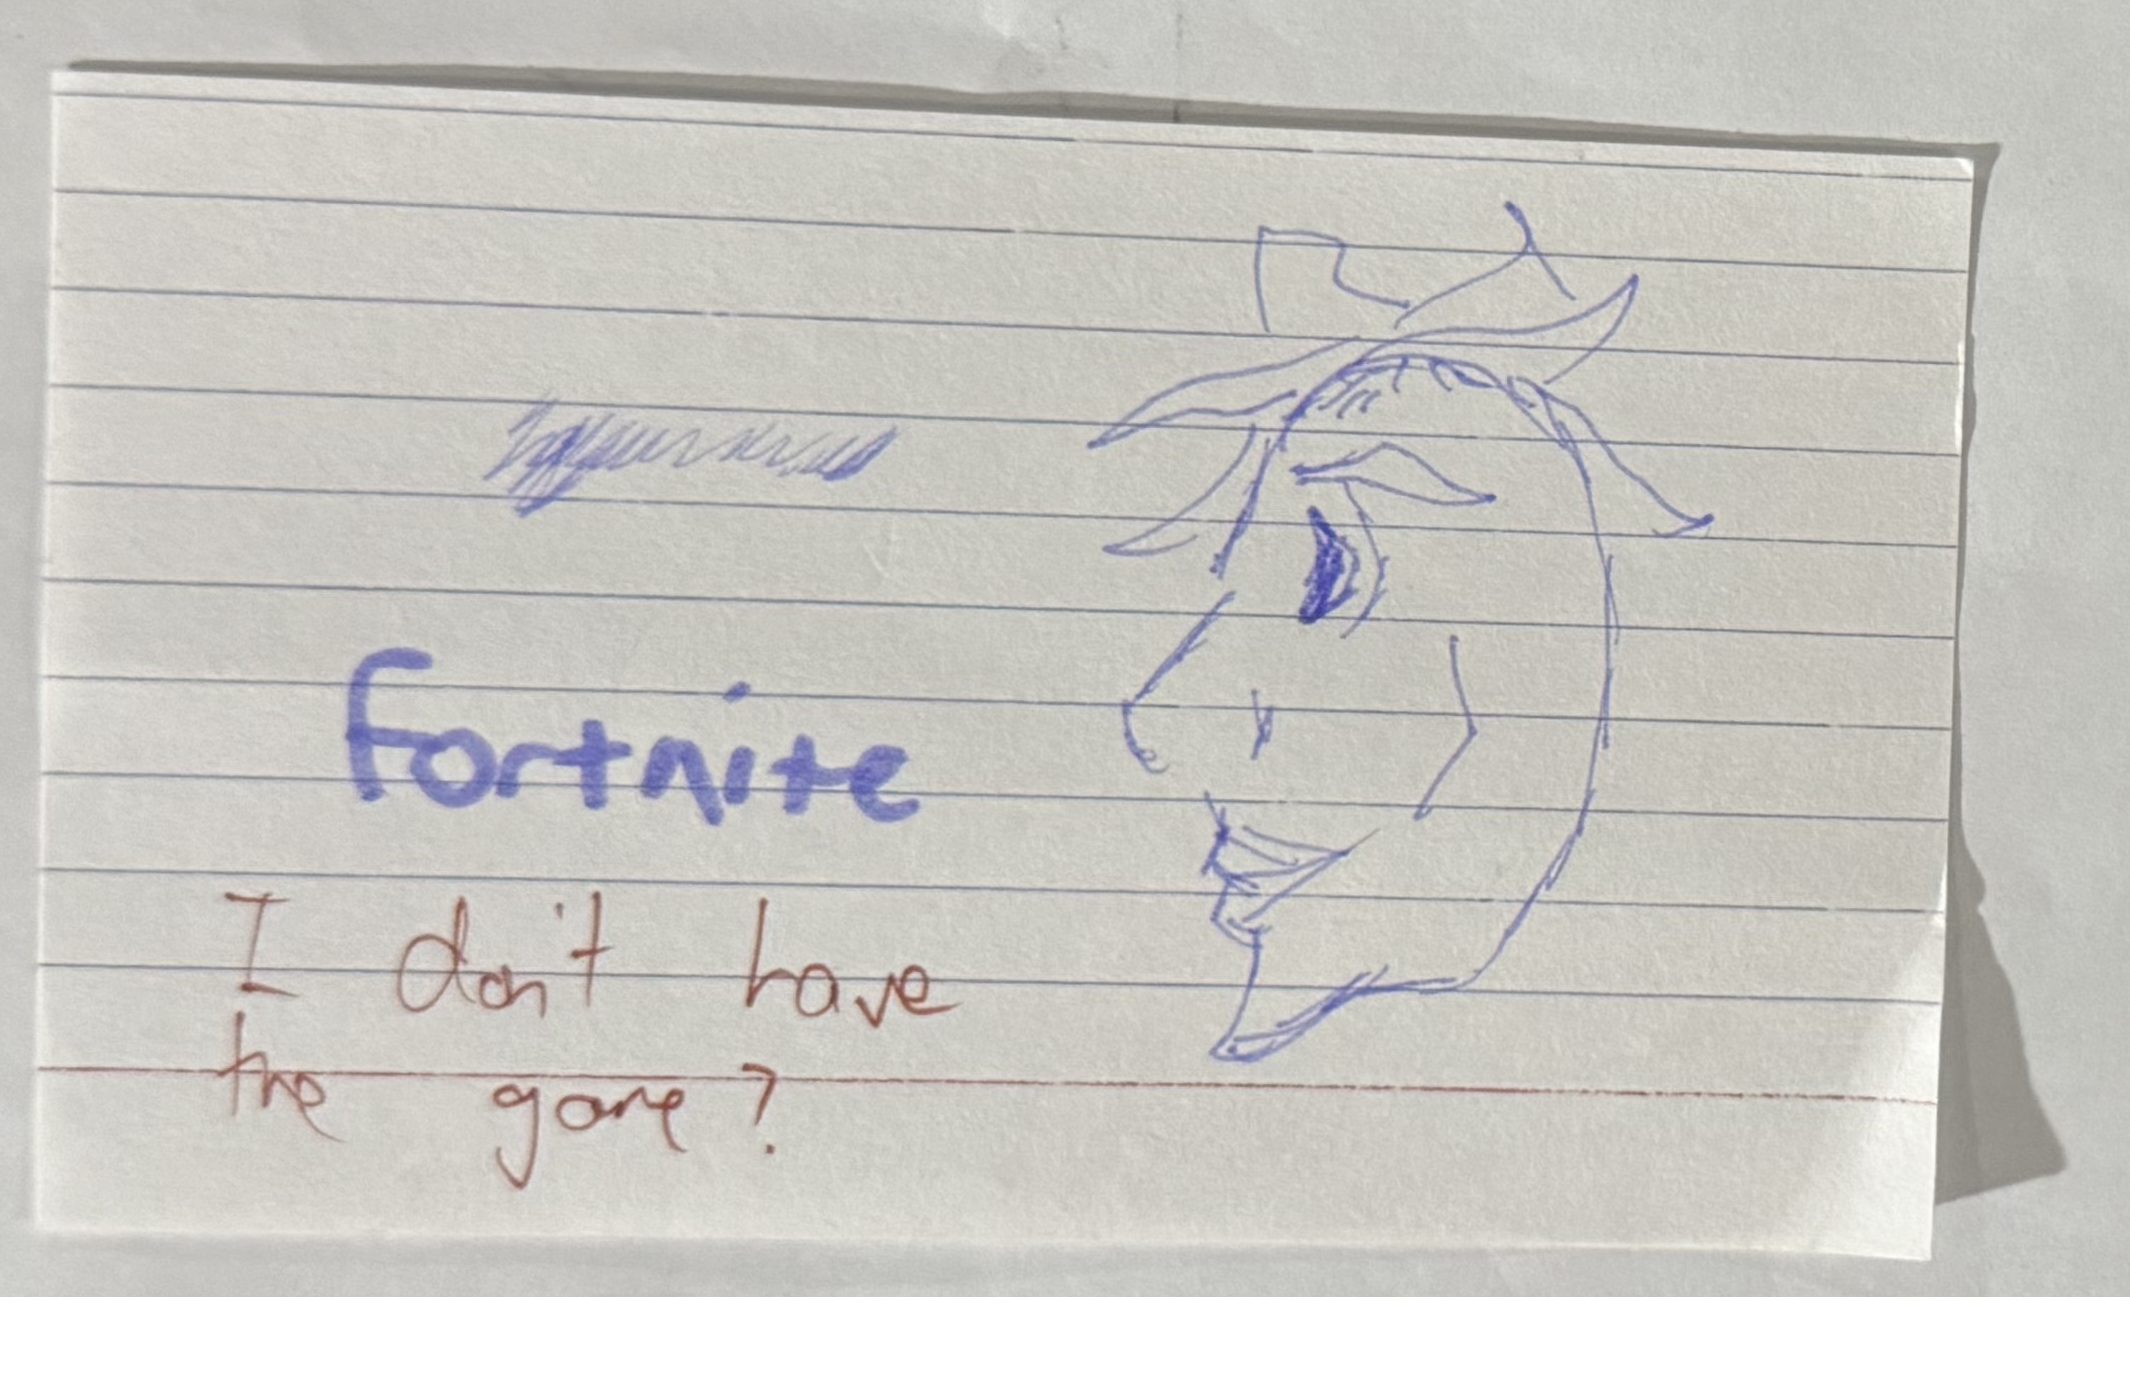 fortnite
I don't have
the game?